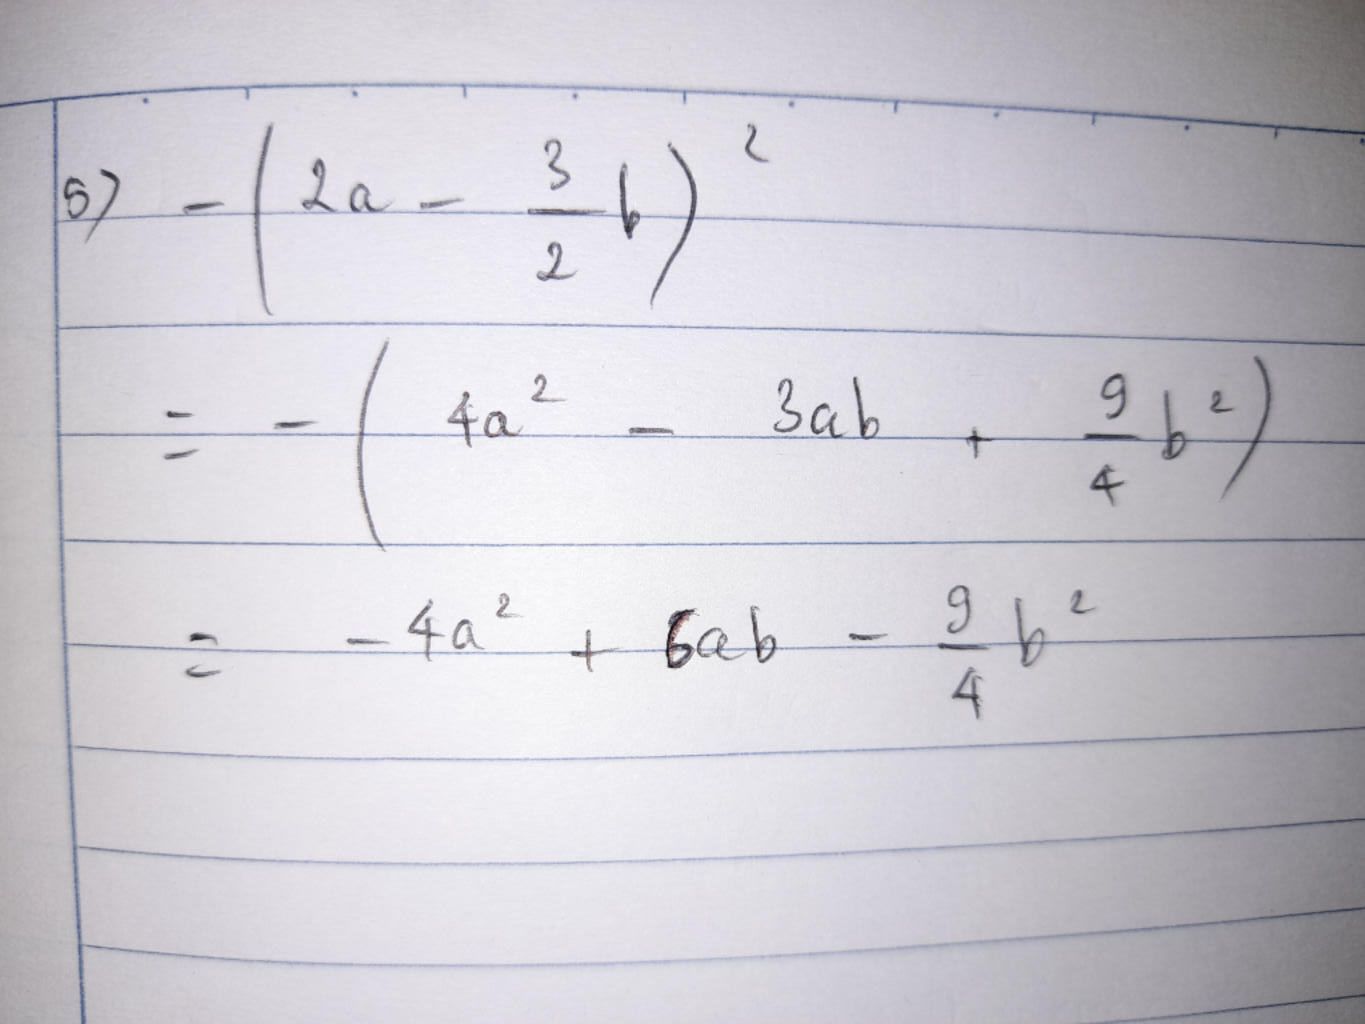 5) - ( 2a - 3/2 b )²
= - ( 4a² - 3ab + 9/4 b² )
= - 4a² + 6ab - 9/4 b²